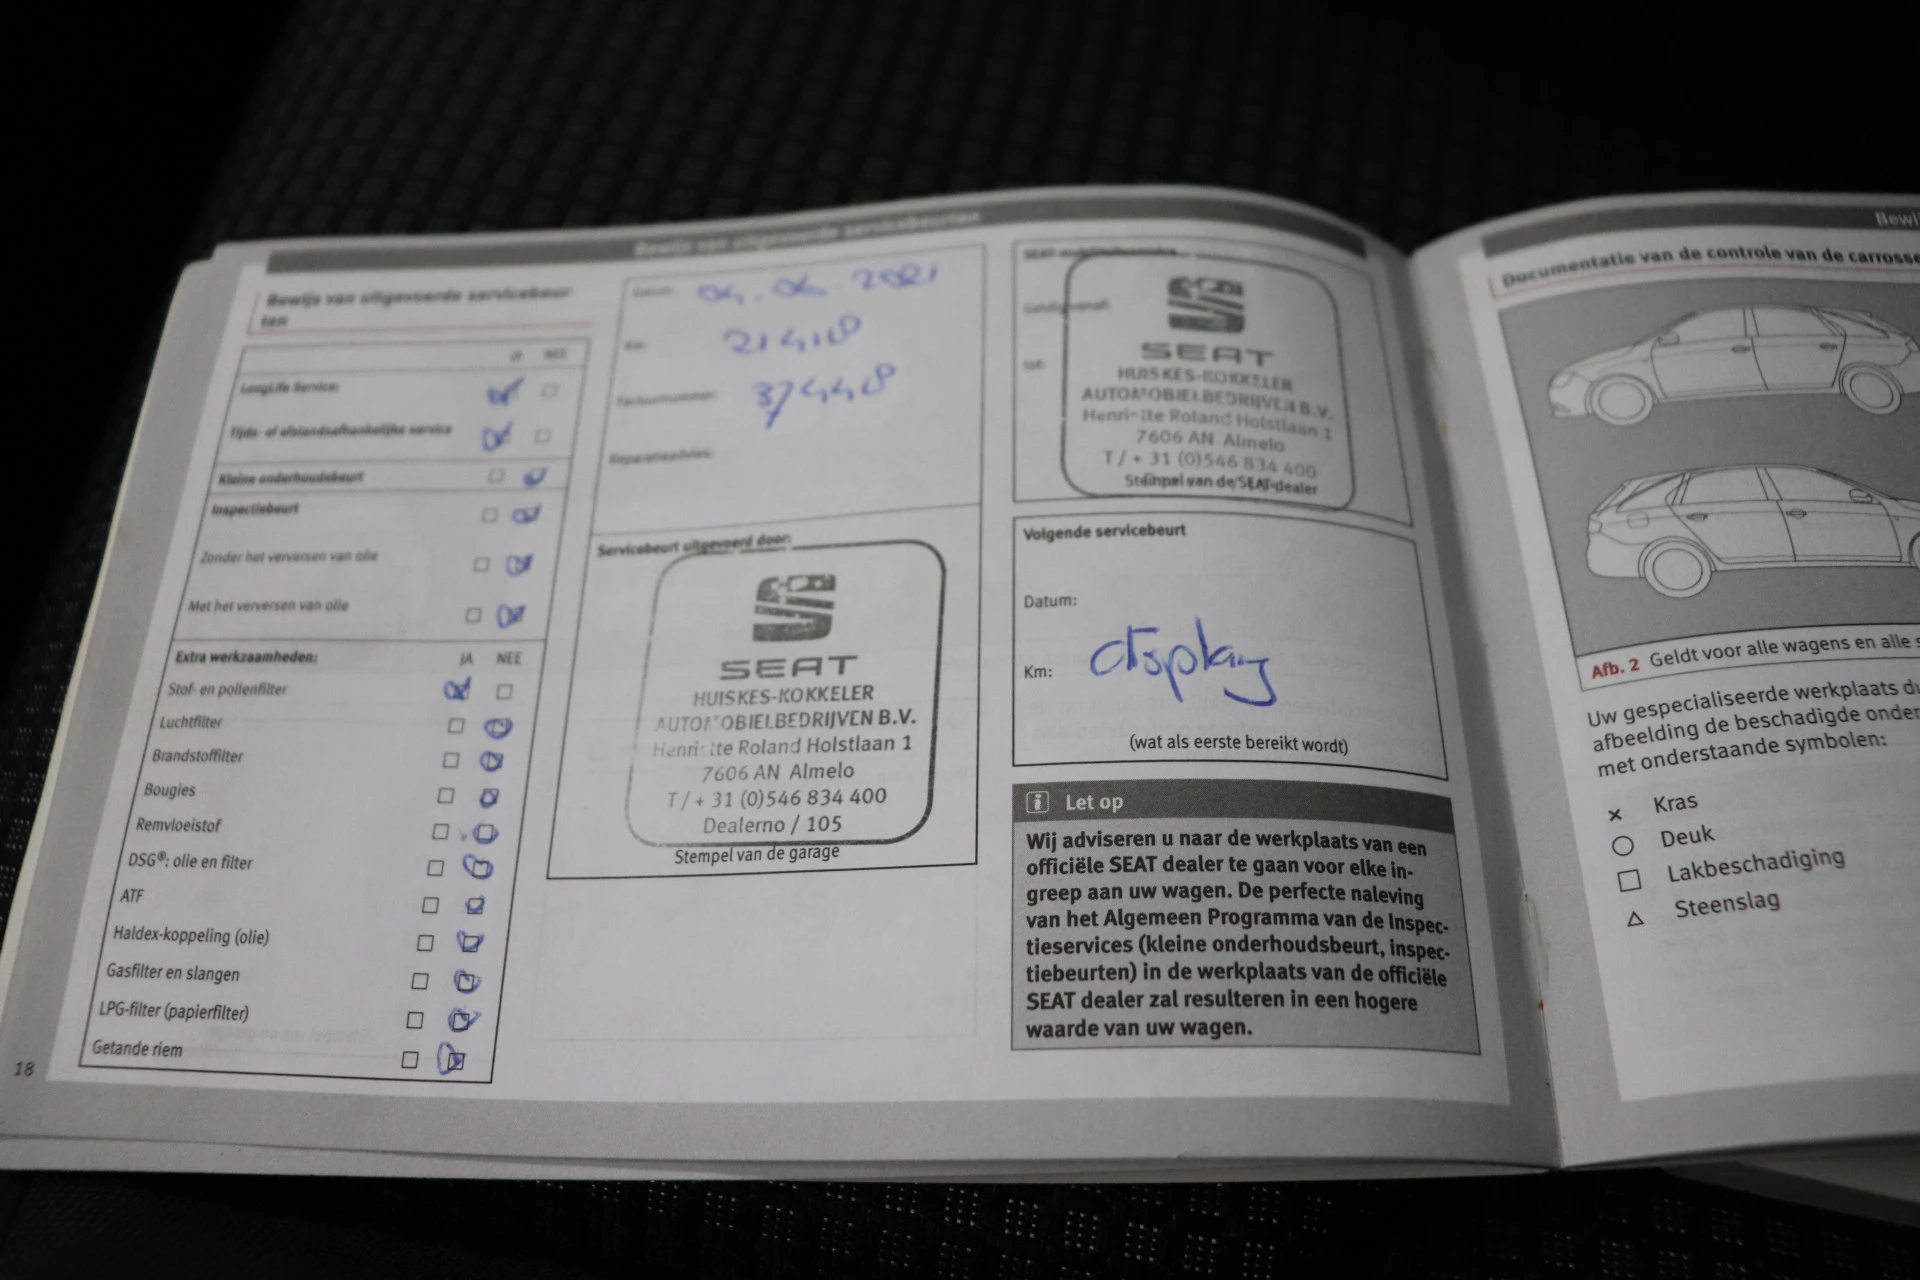 Bewijs van uitgevoerde servicebeurten
Bewijs van uitgevoerde servicebeur-
ten
JA NEE
LongLife Service:
Tijds- of afstandsafhankelijke service
Kleine onderhoudsbeurt
Inspectiebeurt
Zonder het verversen van olie
Met het verversen van olie
Extra werkzaamheden: JA NEE
Stof- en pollenfilter
Luchtfilter
Brandstoffilter
Bougies
Remvloeistof
DSG®: olie en filter
ATF
Haldex-koppeling (olie)
Gasfilter en slangen
LPG-filter (papierfilter)
Getande riem
18
Datum: 04.06.2021
Km:
Factuurnummer: 37448
Reparatieadvies:
Servicebeurt uitgevoerd door:
SEAT
HUISKES-KOKKELER
AUTOMOBIELBEDRIJVEN B.V.
Henriëtte Roland Holstlaan 1
7606 AN Almelo
T / + 31 (0)546 834 400
Dealerno / 105
Stempel van de garage
SEAT
Geldig vanaf:
tot:
SEAT
HUISKES-KOKKELER
AUTOMOBIELBEDRIJVEN B.V.
Henriëtte Roland Holstlaan 1
7606 AN Almelo
T / + 31 (0)546 834 400
Stempel van de SEAT-dealer
Volgende servicebeurt
Datum:
Km: display
(wat als eerste bereikt wordt)
i Let op
Wij adviseren u naar de werkplaats van een
officiële SEAT dealer te gaan voor elke in-
greep aan uw wagen. De perfecte naleving
van het Algemeen Programma van de Inspec-
tieservices (kleine onderhoudsbeurt, inspec-
tiebeurten) in de werkplaats van de officiële
SEAT dealer zal resulteren in een hogere
waarde van uw wagen.
Bewij
Documentatie van de controle van de carrosse
Afb. 2 Geldt voor alle wagens en alle s
Uw gespecialiseerde werkplaats du
afbeelding de beschadigde onder
met onderstaande symbolen:
Kras
Deuk
Lakbeschadiging
Steenslag